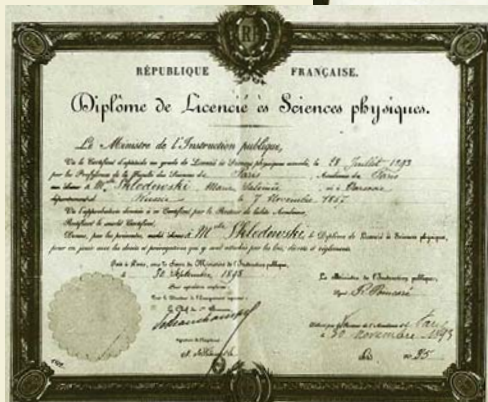 RF
RÉPUBLIQUE FRANÇAISE.
Diplôme de Licencié ès Sciences physiques.
Le Ministre de l'Instruction publique,
Vu le Certificat d'aptitude au grade de Licencié ès Sciences physiques accordé, le 28 Juillet 1893
par les Professeurs de la Faculté des Sciences de Paris, Académie de Paris
Skłodowski Marie Salomée Varsovie
Russie le 7 Novembre
Vu l'approbation donnée à ce Certificat par le Recteur de ladite Académie,
Ratifiant le susdit Certificat,
Donne, par les présentes, à Mlle Skłodowski, le Diplôme de Licencié ès Sciences physiques,
pour en jouir avec les droits et prérogatives qui y sont attachés par les lois, décrets et règlements.
Fait à Paris, sous le Sceau du Ministère de l'Instruction publique,
le 30 Septembre 1893
Le Ministre de l'Instruction publique,
Signé R. Poincaré
Pour le Directeur de l'Enseignement supérieur:
Le Chef du Bureau
Délivré par le Recteur de l'Académie de Paris
30 novembre 1893